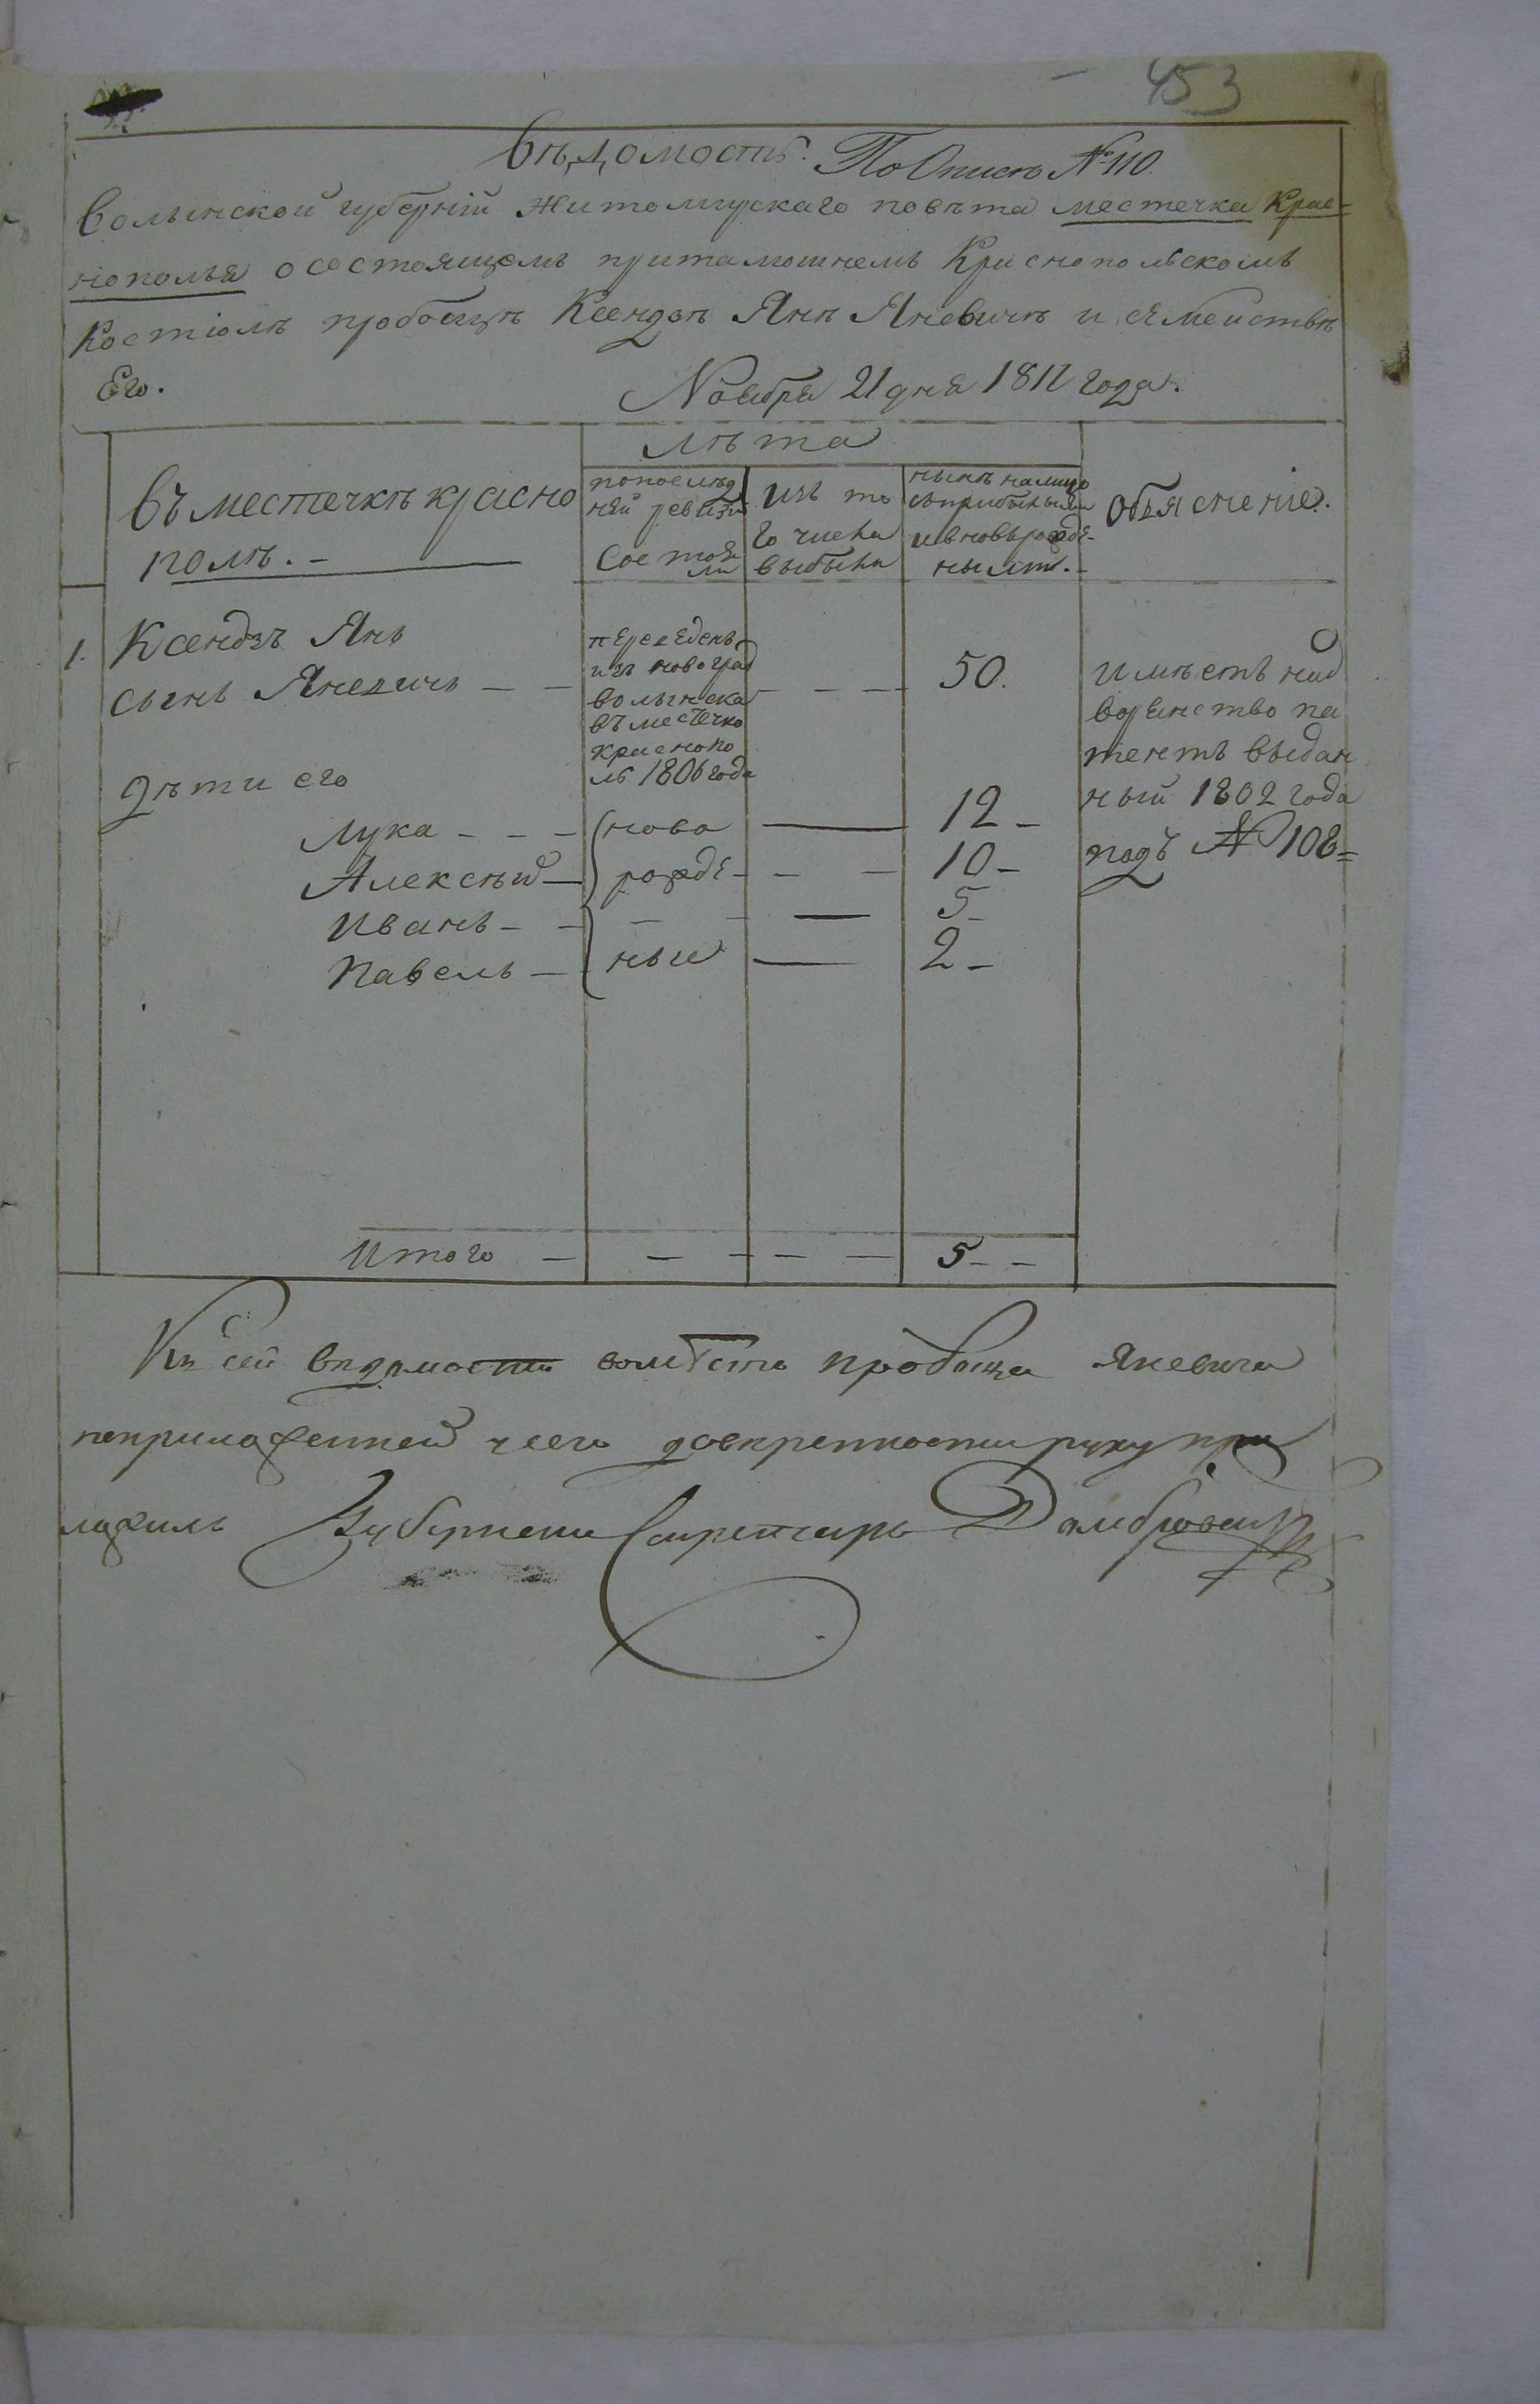 453
Вѣдомость. По Описѣ № 110.
Волынской губерній Житомирскаго повѣта местечка Крас-
нополья о состоящемъ при тамошнемъ Краснопольскомъ
Костіолѣ пробощѣ Ксендзѣ Янѣ Яневичѣ и семействѣ
Его.
Ноября 21 дня 1811 года.
лѣта
Въ местечкѣ красно
полѣ. -
попослѣд
ней ревизіи
Состоя
ли
изъ то
го числа
выбыли
нынѣ налицо
съприбылыми
ивновьрожде-
нымы. -
Объясненіе.
1. Ксендзъ Янъ
сынъ Яневичъ - -
переведенъ
изъ новоград
волынска
въ местечко
краснопо
лѣ 1806 года
- - -
50.
имѣетъ над
ворянство па
тентъ выдан
ный 1802 года
подъ № 108=
дѣти его
Лука - - - ново — 12 -
Алексѣй — рожде- - — 10 -
Иванъ - - - - — 5 -
Павелъ — ные — 2 -
Итого — — - - — 5 - -
Къ сей ведомости вместо пробоща Яневича
поприложенной унего доверенности руку при
ложилъ Губернски Секретарь Домбровски